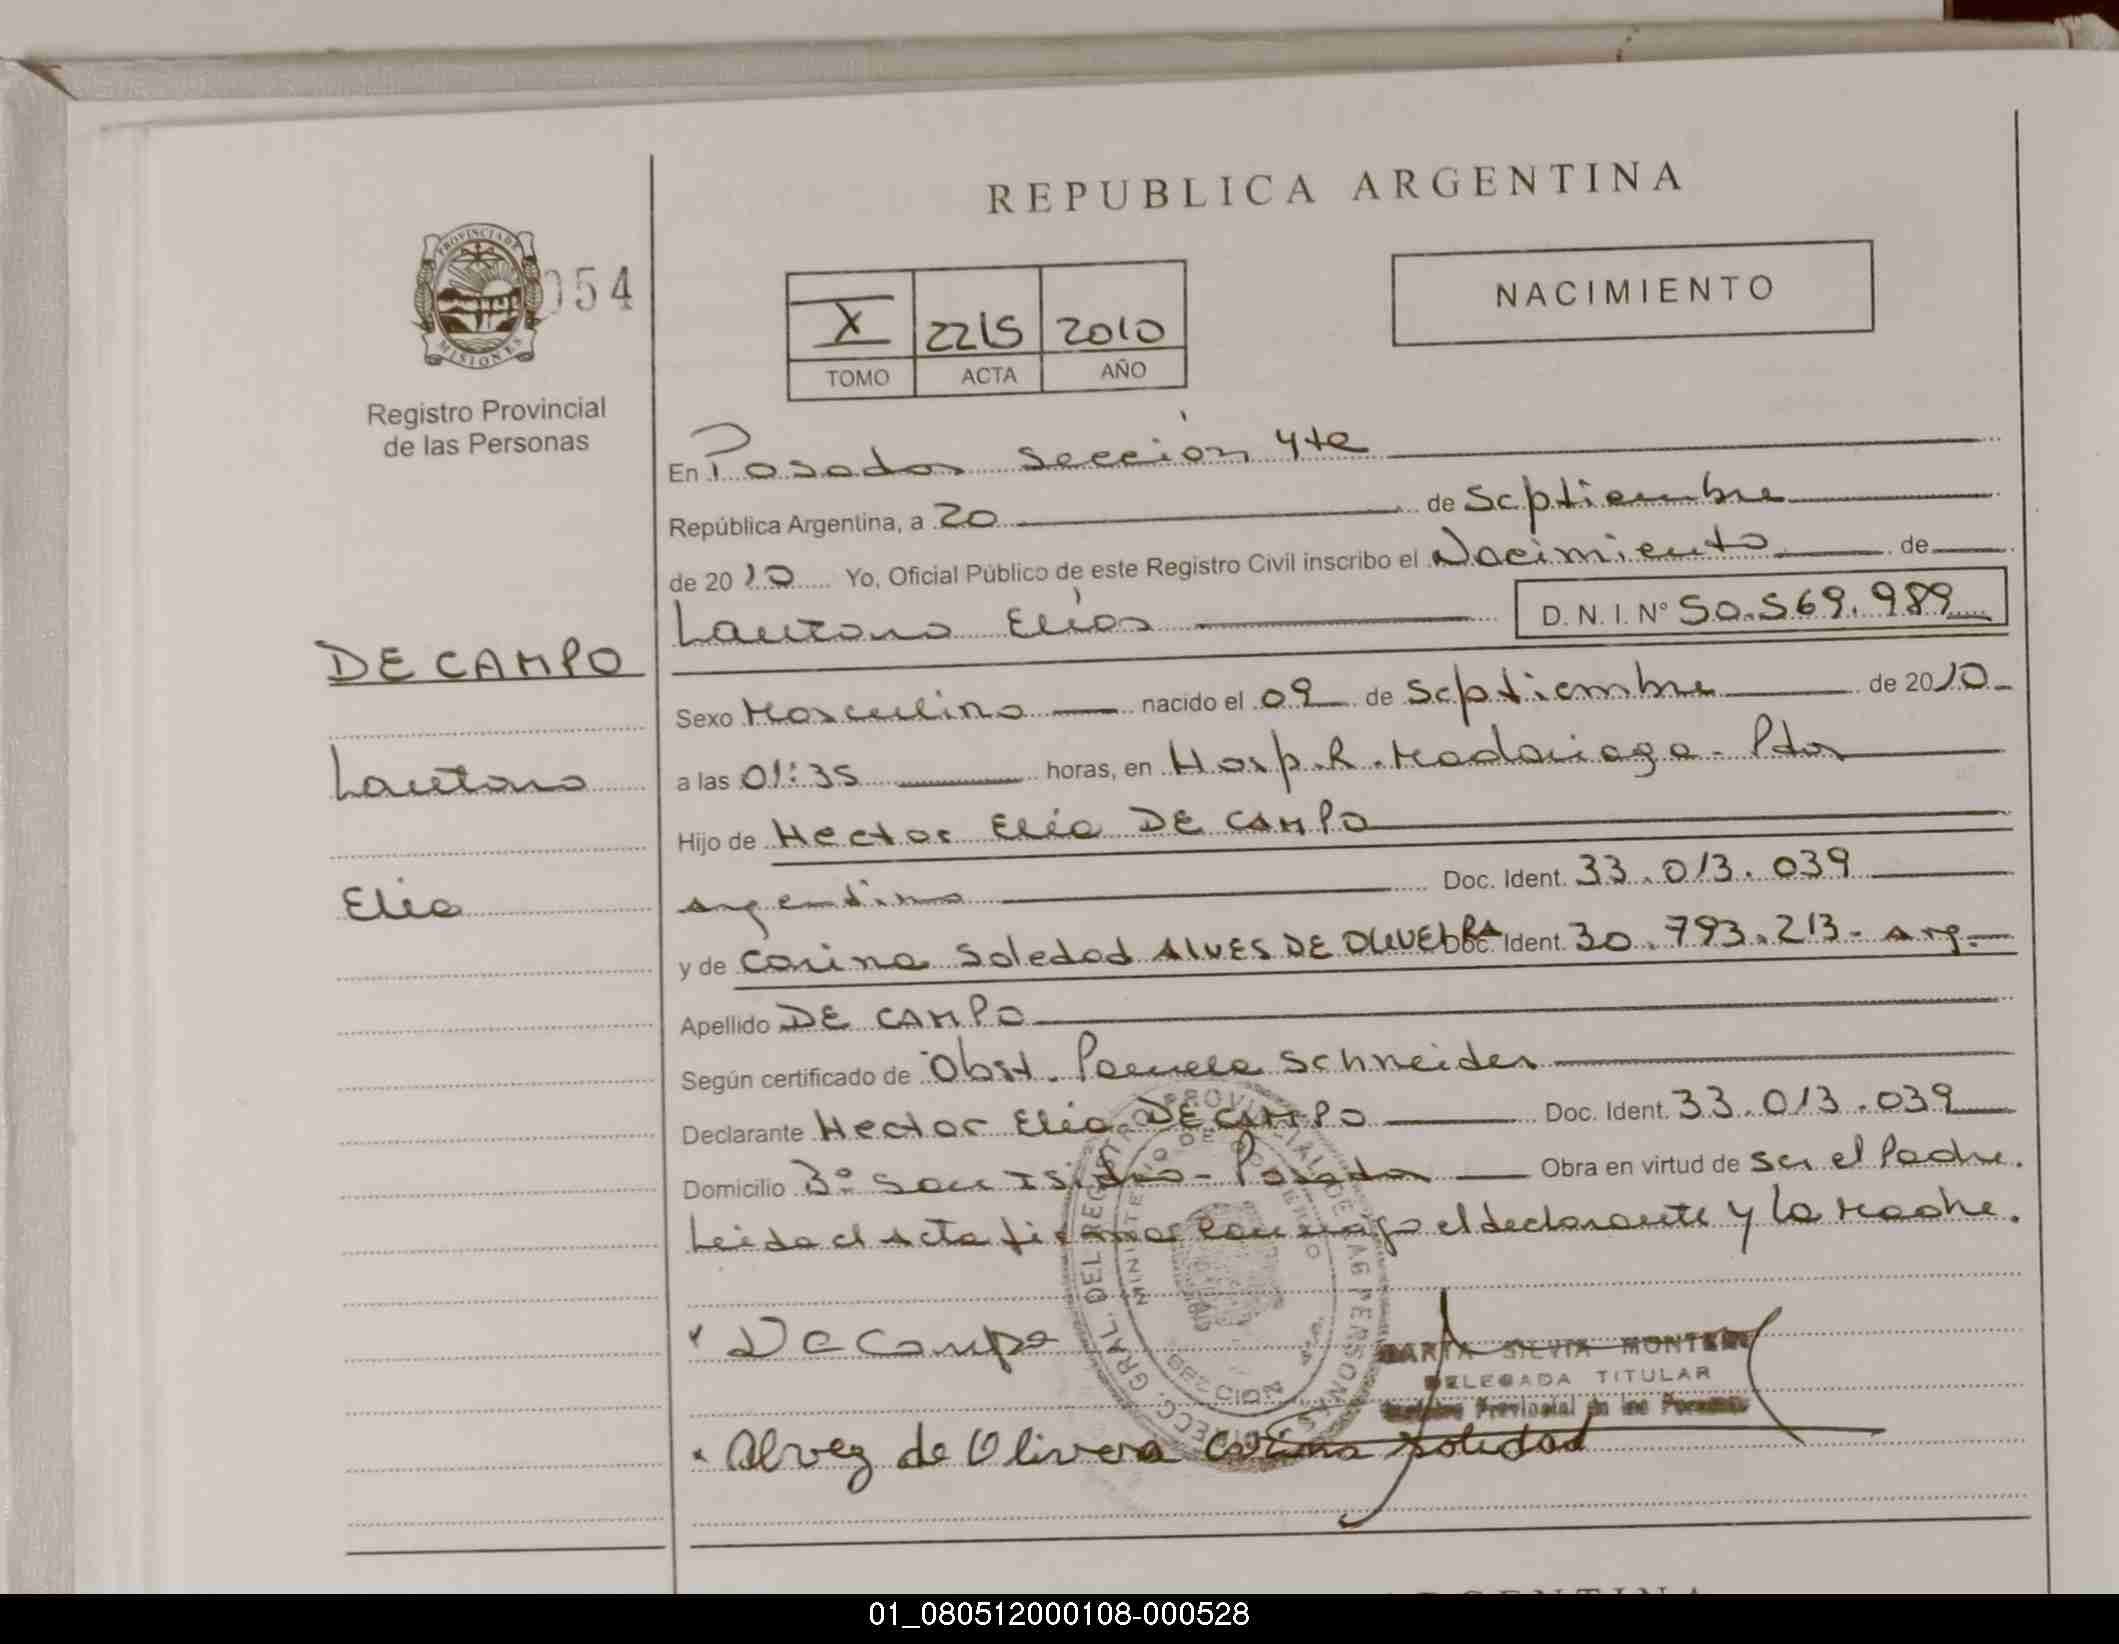 REPUBLICA ARGENTINA
PROVINCIA DE
MISIONES
054
NACIMIENTO
X 2215 2010
TOMO ACTA AÑO
Registro Provincial
de las Personas
En Posadas sección 4ta
República Argentina, a 20 de Septiembre
de 2010 Yo, Oficial Público de este Registro Civil inscribo el Nacimiento de
Lautaro Elías D. N. I. Nº 50.569.989
DE CAMPO
Sexo Masculino nacido el 09 de Septiembre de 2010
Lautaro
a las 01:35 horas, en Hosp. R. Madariaga - Pdas
Hijo de Hector Elía DE CAMPO
Elía
argentino Doc. Ident. 33.013.039
y de Carina Soledad ALVES DE OLIVEIRA Doc. Ident. 30.793.213 - Arg.
Apellido DE CAMPO
Según certificado de Obst. Pamela Schneider
Declarante Hector Elía DE CAMPO Doc. Ident. 33.013.039
Domicilio Bº San Isidro - Posadas Obra en virtud de ser el Padre.
Leida el Acta firman conmigo el declarante y la Madre.
De Campo
MARTA SILVIA MONTERO
DELEGADA TITULAR
Registro Provincial de las Personas
Alvez de Olivera Carina soledad
01_080512000108-000528